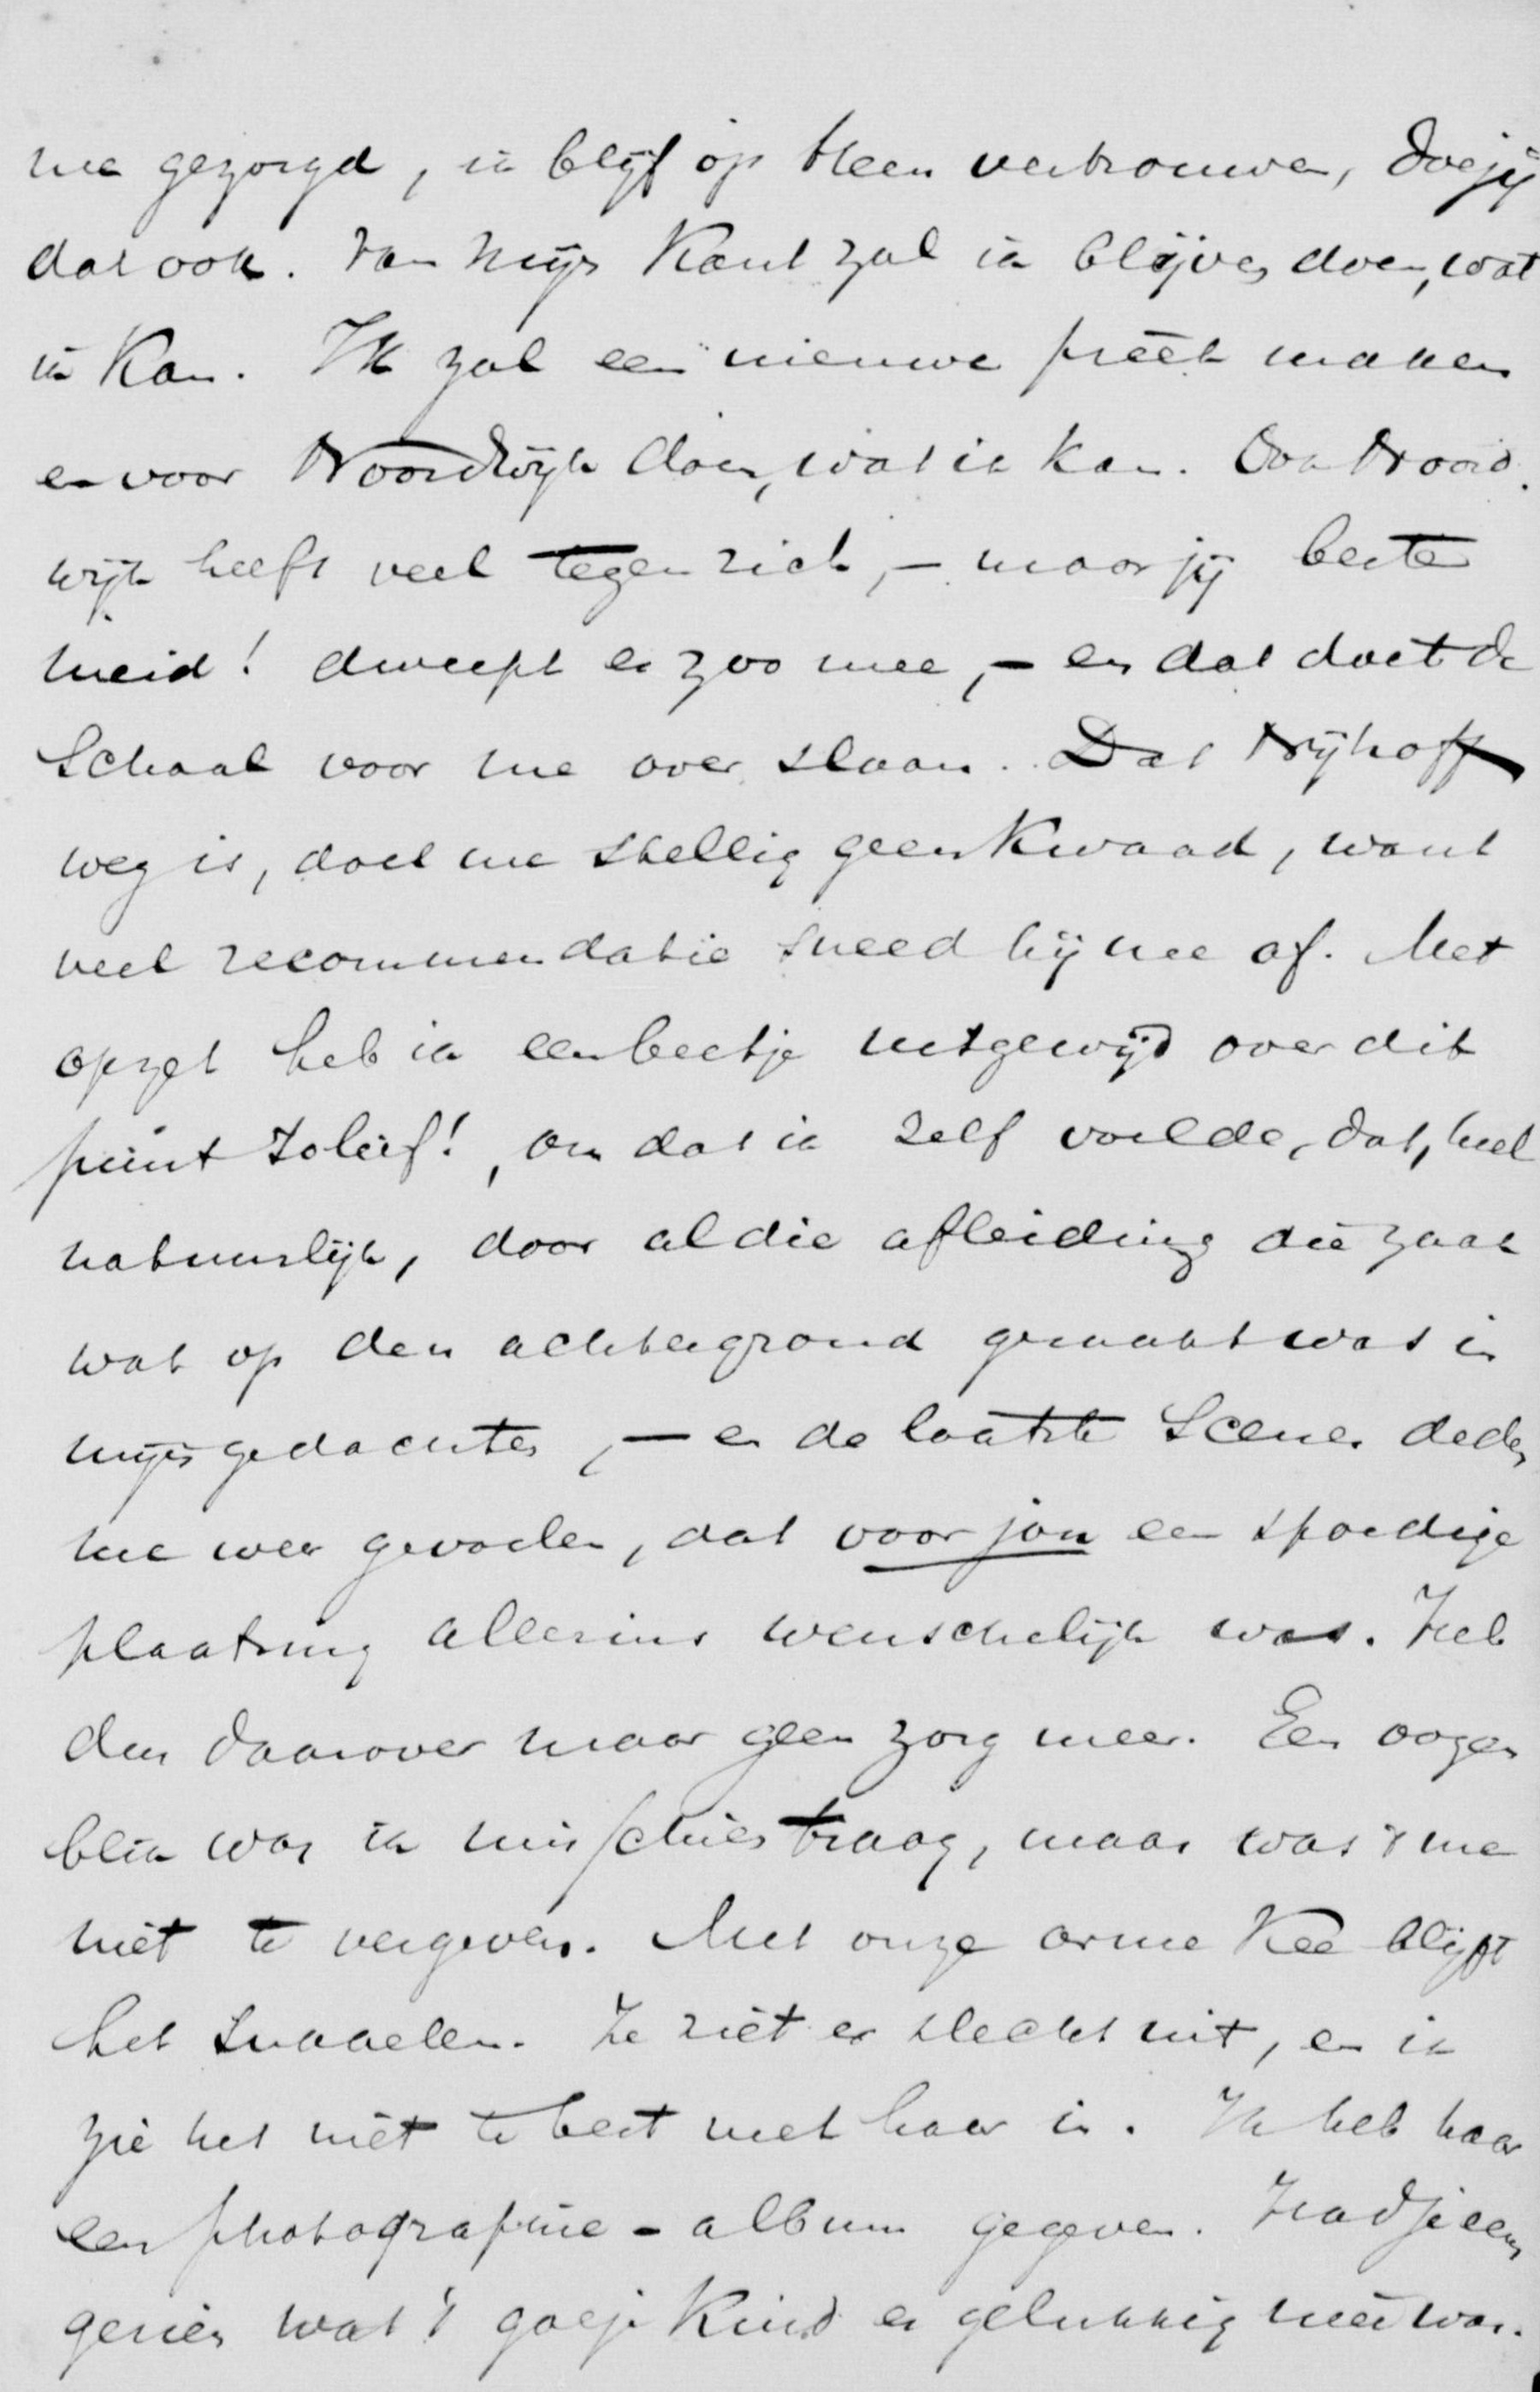 me gezorgd, ik blijf op Hem vertrouwen, doe jij
dat ook. Van mijn kant zal ik blijven doen, wat
ik kan. Ik zal een nieuwe preek maken
en voor Noordwijk doen, wat ik kan. Ook Noord-
wijk heeft veel tegen zich, – maar jij beste
meid! dweept er zoo mee, – en dat doet de
Schaal voor me over slaan. Dat Nijhoff
weg is, doet me stellig geen kwaad, want
veel recommendatie sneed hij me af. Met
opzet heb ik een beetje uitgewijd over dit
punt Zolief!, om dat ik zelf voelde, dat, heel
natuurlijk, door al die afleiding die zaak
wat op den achtergrond geraakt was in
mijn gedachten, – en de laatste Scenes deden
me weer gevoelen, dat voor jou een spoedige
plaatsing allesins wenschelijk was. Heb
dus daarover maar geen zorg meer. Een oogen
blik was ik misschien traag, maar was 't me
niet te vergeven. Met onze arme Kee blijft
het sukkelen. Ze ziet er slecht uit, en ik
zie het niet te best met haar in. Ik heb haar
een photografie-album gegeven. Hadje eens
gezien wat 't goeje kind er gelukkig mee was.